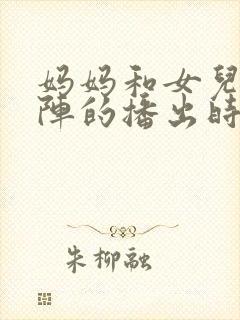 妈妈和女兒
陣的播出時
朱柳融